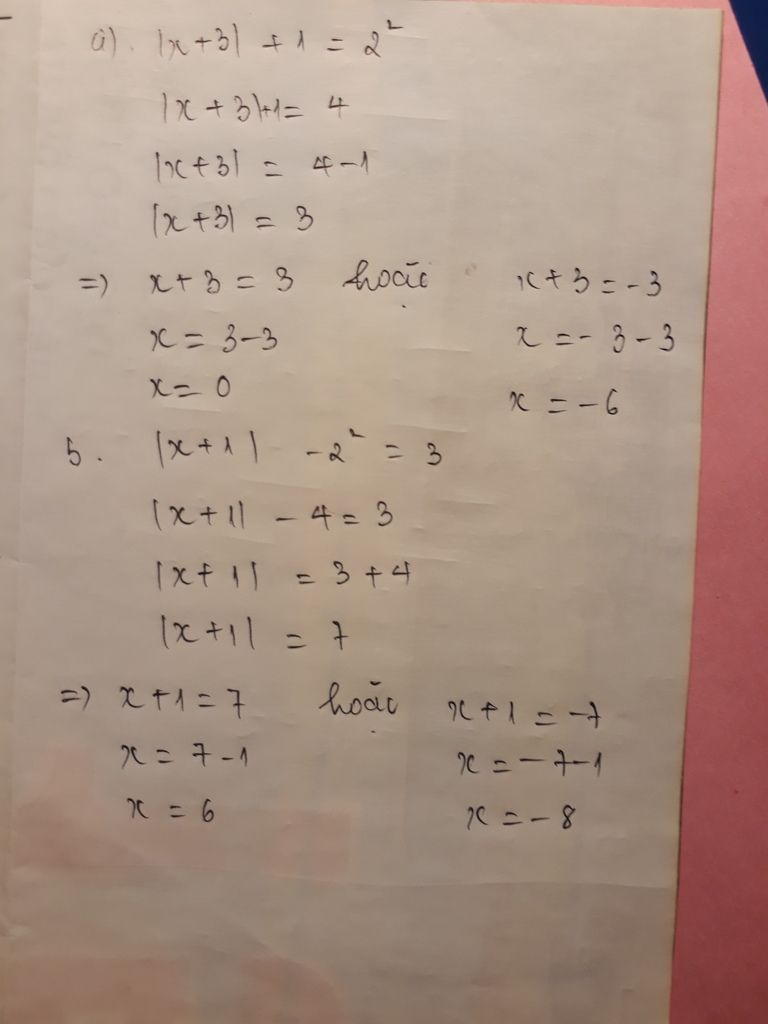 a). |x+3| + 1 = 2²
|x + 3|+1= 4
|x+3| = 4-1
|x+3| = 3
=> x+3 = 3 hoặc x+3 = -3
x = 3-3 x = - 3 - 3
x= 0 x = -6
b. |x+1| -2² = 3
|x+1| - 4 = 3
|x+1| = 3+4
|x+1| = 7
=> x+1 = 7 hoặc x+1 = -7
x = 7-1 x = -7-1
x = 6 x = - 8